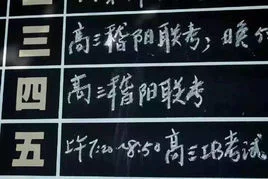 三 高三稽阳联考；晚
四 高三稽阳联考
五 上午7:20~8:50高三IB考试